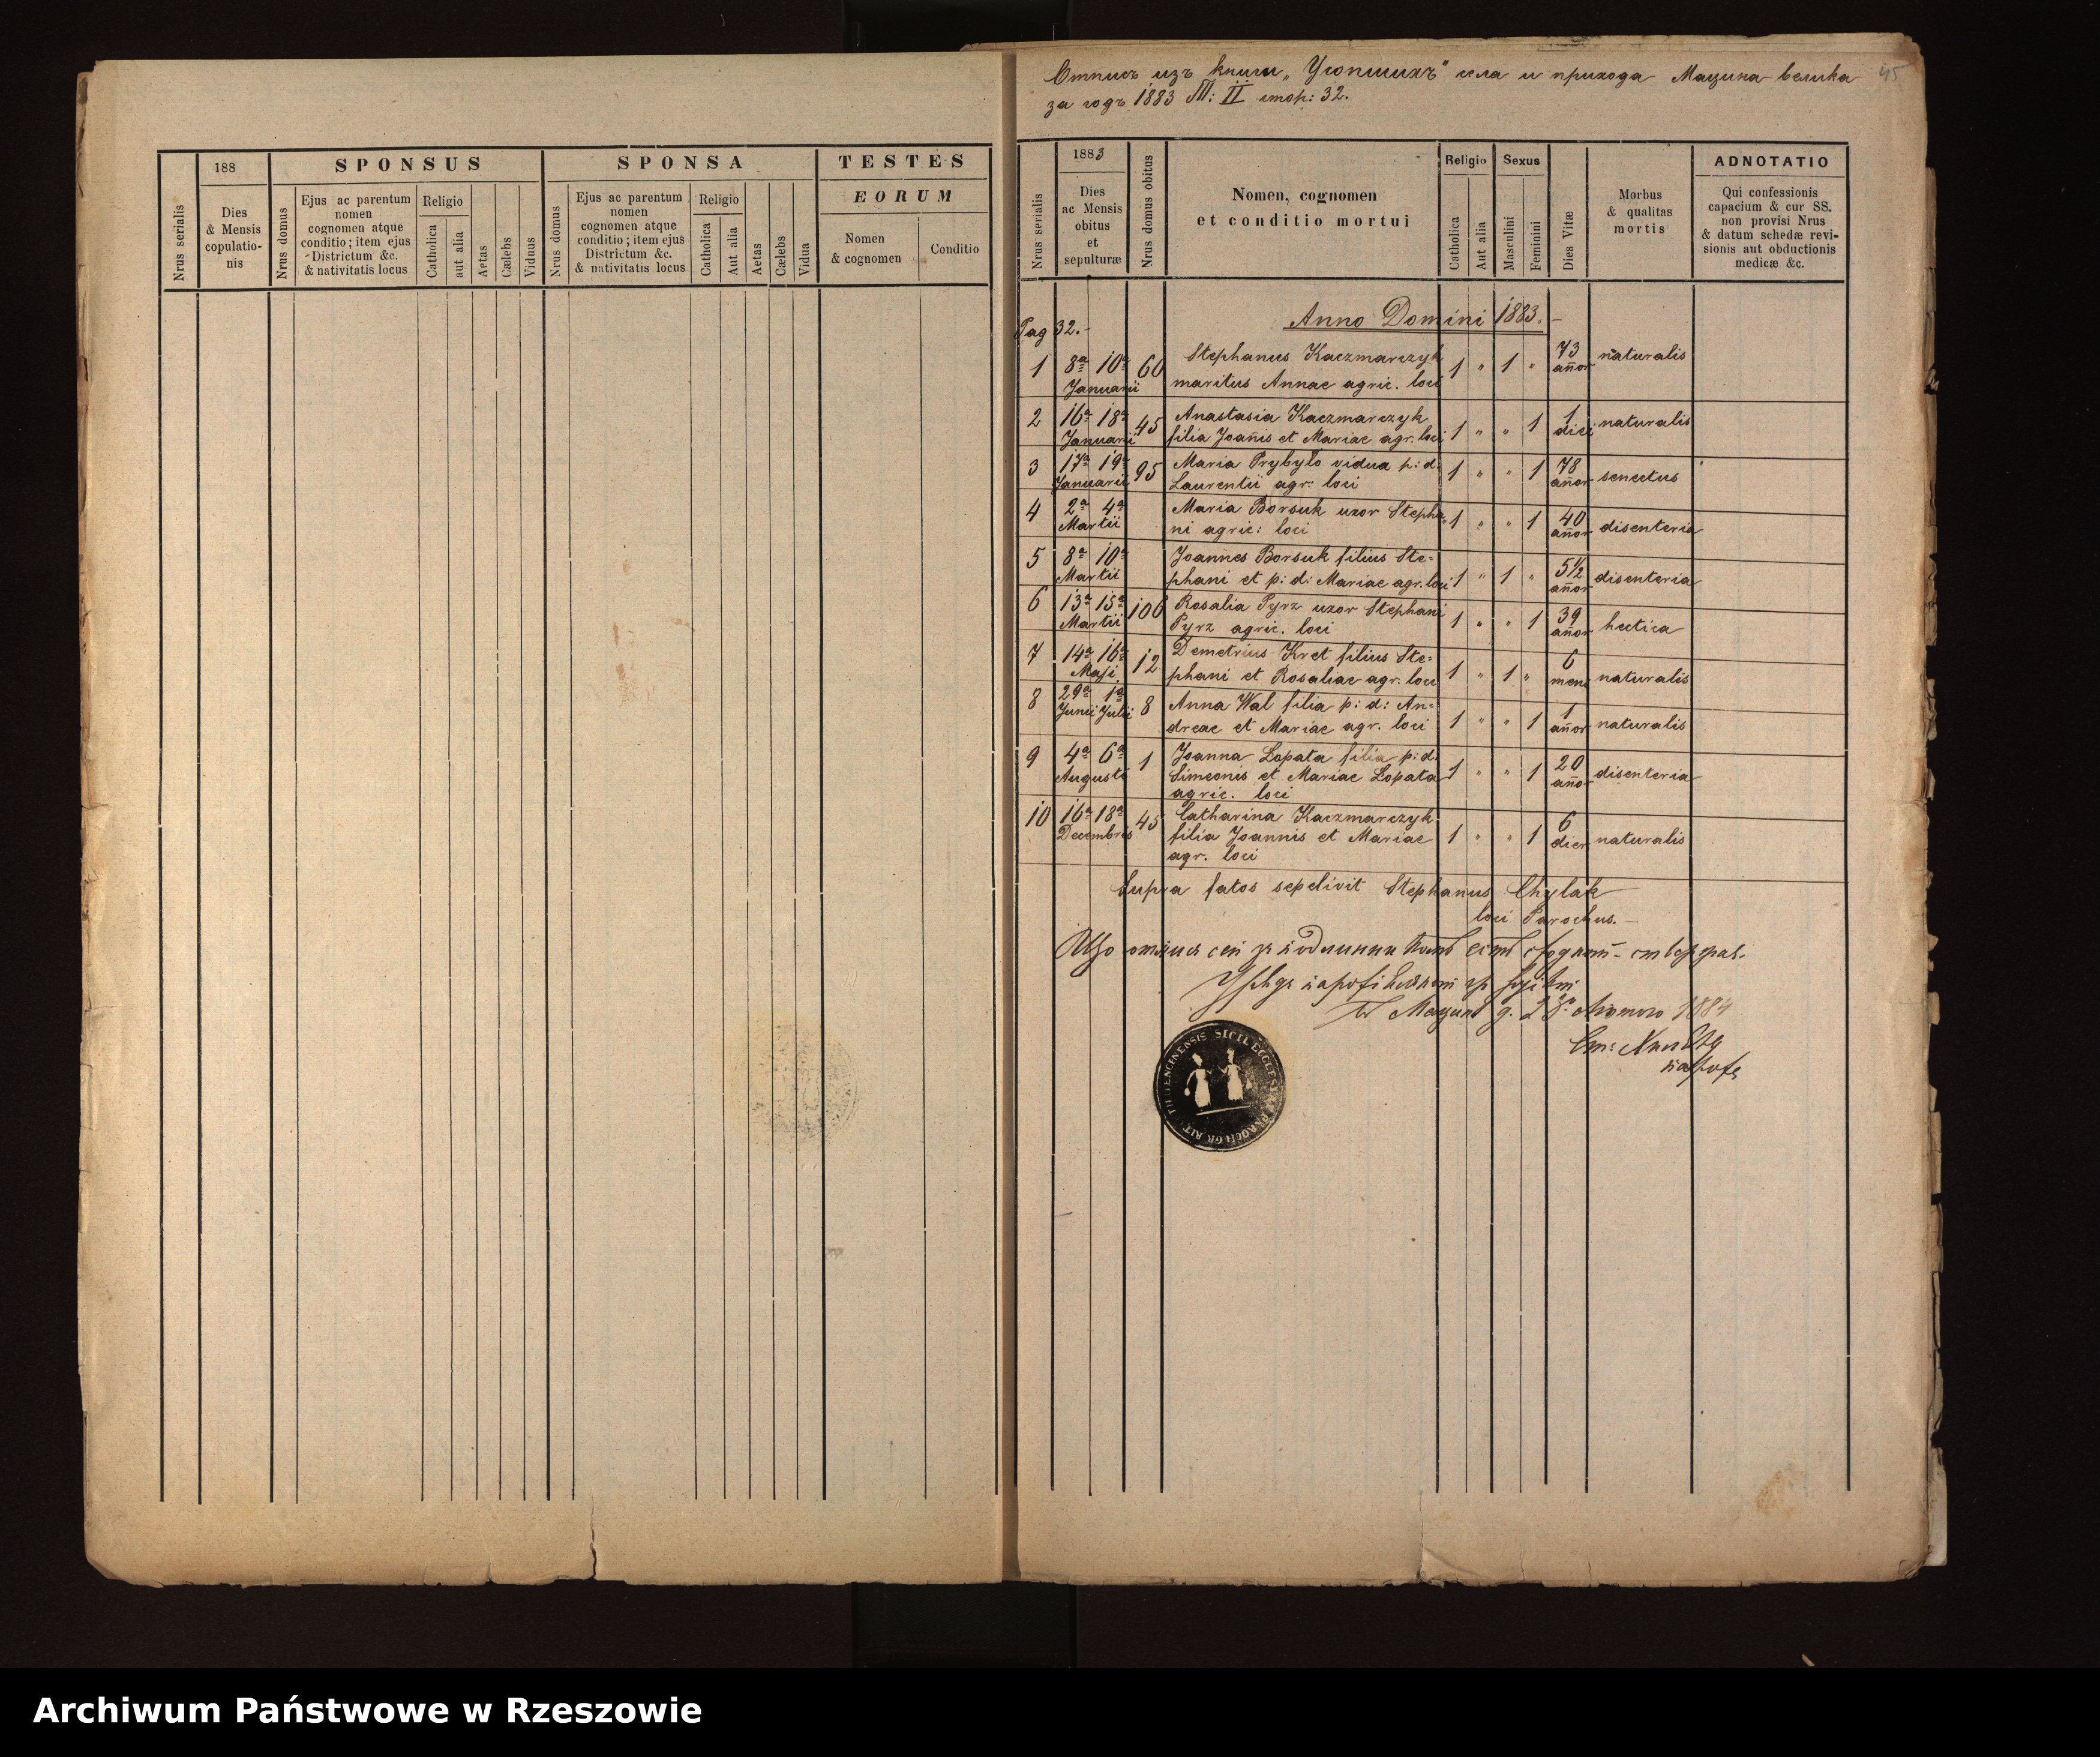 188
Nrus serialis
Dies
& Mensis
copulatio-
nis
SPONSUS
Nrus domus
Ejus ac parentum
nomen
cognomen atque
conditio; item ejus
Districtum &c.
& nativitatis locus
Religio
Catholica
aut alia
Aetas
Cælebs
Viduus
SPONSA
Nrus domus
Ejus ac parentum
nomen
cognomen atque
conditio; item ejus
Districtum &c.
& nativitatis locus
Religio
Catholica
Aut alia
Aetas
Cælebs
Vidua
TESTES
EORUM
Nomen
& cognomen
Conditio
45
Отписъ изъ книги „Усопшихъ" села и прихода Мацина велика
за годъ 1883 Т: II стор: 32.
Nrus serialis
1883
Dies
ac Mensis
obitus
et
sepulturæ
Nrus domus obitus
Nomen, cognomen
et conditio mortui
Religio
Catholica
Aut alia
Sexus
Masculini
Feminini
Dies Vitæ
Morbus
& qualitas
mortis
ADNOTATIO
Qui confessionis
capacium & cur SS.
non provisi Nrus
& datum schedæ revi-
sionis aut obductionis
medicæ &c.
Pag 32.-
Anno Domini 1883.-
1 8a 10a Januarii 60 Stephanus Kaczmarczyk 1 " 1 " 73 añor naturalis
maritus Annae agric. loci
2 16a 18a Januarii 45 Anastasia Kaczmarczyk 1 " " 1 1 diei naturalis
filia Joañis et Mariae agr. loci
3 17a 19a Januarii 95 Maria Prybyło vidua p: d: 1 " " 1 78 añor senectus
Laurentii agr: loci
4 2a 4a Martii Maria Borsuk uxor Stepha- 1 " " 1 40 añor disenteria
ni agric: loci
5 8a 10a Martii Joannes Borsuk filius Ste= 1 " 1 " 5 1/2 añor disenteria
phani et p: d: Mariae agr. loci
6 13a 15a Martii 106 Rosalia Pyrz uxor Stephani 1 " " 1 39 añor hectica
Pyrz agric. loci
7 14a 16a Maji 12 Demetrius Kret filius Ste= 1 " 1 " 6 mens naturalis
phani et Rosaliae agr. loci
8 29a Junii 1a Julii 8 Anna Wal filia p: d: An= 1 " " 1 1 añor naturalis
dreae et Mariae agr. loci
9 4a 6a Augusti 1 Joanna Łopata filia p: d. 1 " " 1 20 año disenteria
Simeonis et Mariae Łopata
agric. loci
10 16a 18a Decembris 45 Catharina Kaczmarczyk 1 " " 1 6 dier naturalis
filia Joannis et Mariae
agr. loci
Supra fatos sepelivit Stephanus Chylak
loci Parochus.-
1884
SIGIL ECCLESIAE PAROCH GR RIT
Archiwum Państwowe w Rzeszowie